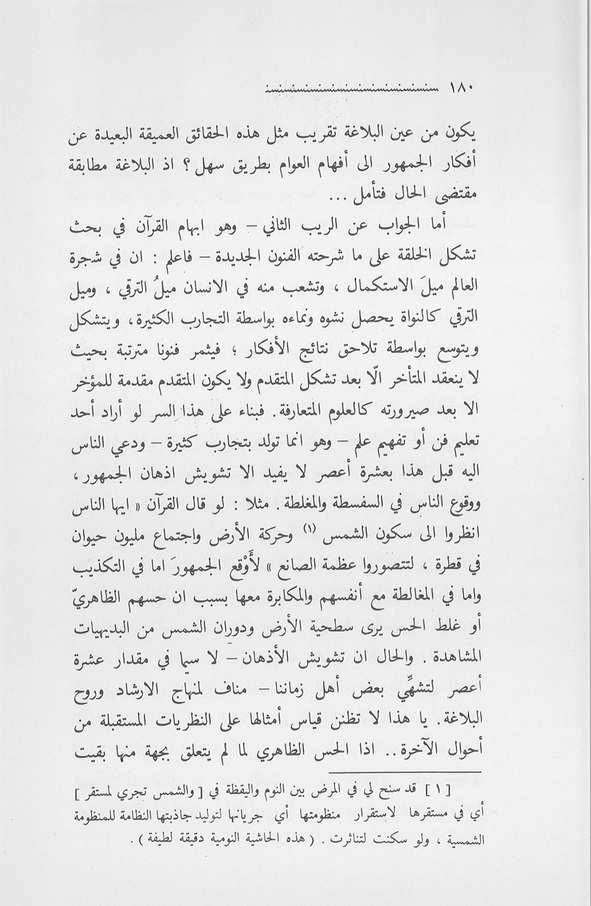 ١٨٠
يكون من عين البلاغة تقريب مثل هذه الحقائق العميقة البعيدة عن
أفكار الجمهور الى أفهام العوام بطريق سهل ؟ اذ البلاغة مطابقة
مقتضى الحال فتأمل ...
أما الجواب عن الريب الثاني – وهو ابهام القرآن في بحث
تشكل الخلقة على ما شرحته الفنون الجديدة – فاعلم : ان في شجرة
العالم ميلَ الاستكمال ، وتشعب منه في الانسان ميلُ الترقي ، وميل
الترقي كالنواة يحصل نشوه ونماءه بواسطة التجارب الكثيرة، ويتشكل
ويتوسع بواسطة تلاحق نتائج الأفكار ؛ فيثمر فنونا مترتبة بحيث
لا ينعقد المتأخر الّا بعد تشكل المتقدم ولا يكون المتقدم مقدمة للمؤخر
الا بعد صيرورته كالعلوم المتعارفة. فبناء على هذا السر لو أراد أحد
تعليم فن أو تفهيم علم – وهو انما تولد بتجارب كثيرة – ودعي الناس
اليه قبل هذا بعشرة أعصر لا يفيد الا تشويش اذهان الجمهور ،
ووقوع الناس في السفسطة والمغلطة . مثلا : لو قال القرآن « ايها الناس
انظروا الى سكون الشمس (١) وحركة الأرض واجتماع مليون حيوان
في قطرة ، لتتصوروا عظمة الصانع » لأَوْقع الجمهورَ اما في التكذيب
واما في المغالطة مع أنفسهم والمكابرة معها بسبب ان حسهم الظاهريّ
أو غلط الحس يرى سطحية الأرض ودوران الشمس من البديهيات
المشاهدة . والحال ان تشويش الأذهان – لا سيما في مقدار عشرة
أعصر لتشهِّي بعض أهل زماننا – مناف لمنهاج الارشاد وروح
البلاغة. يا هذا لا تظنن قياس أمثالها على النظريات المستقبلة من
أحوال الآخرة.. اذا الحس الظاهري لما لم يتعلق بجهة منها بقيت
[ ١ ] قد سنح لي في المرض بين النوم واليقظة في [ والشمس تجري لمستقر ]
أي في مستقرها لاستقرار منظومتها أي جريانها لتوليد جاذبتها النظامة للمنظومة
الشمسية ، ولو سكنت لتناثرت . ( هذه الحاشية النومية دقيقة لطيفة ) .